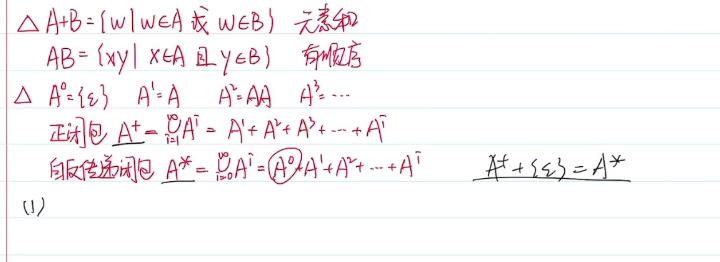 △ A+B={w|w∈A 或 w∈B} 元素和
AB={xy|x∈A 且 y∈B} 有顺序
△ A⁰={ε} A¹=A A²=AA A³=⋯
正闭包 A⁺=⋃_{i=1}^{∞}Aⁱ=A¹+A²+A³+⋯+Aⁱ
自反传递闭包 A*=⋃_{i=0}^{∞}Aⁱ=A⁰+A¹+A²+⋯+Aⁱ A⁺+{ε}=A*
(1)